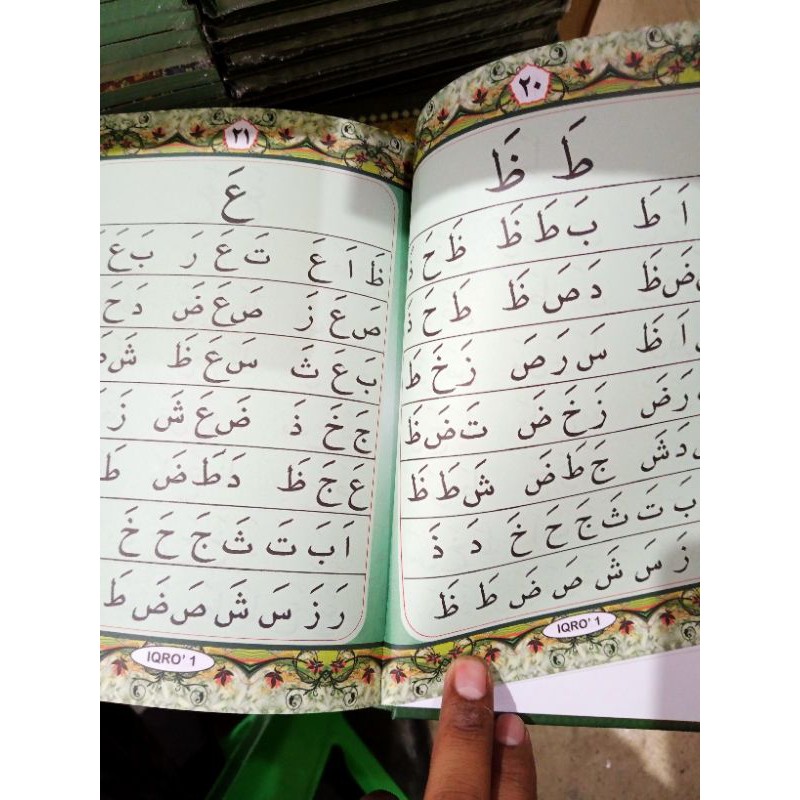 ٢٠
طَ ظَ
اَ طَ بَ طَ ظَ ظَ حَ
ضَ ظَ دَ صَ ظَ طَ حَ
اَ ظَ سَ رَ صَ زَ خَ طَ
رَ ضَ زَ خَ ضَ تَ ضَ ظَ
دَ شَ جَ طَ ضَ شَ طَ ظَ
بَ تَ ثَ جَ حَ خَ دَ ذَ
زَ سَ شَ صَ ضَ طَ ظَ
IQRO' 1
٢١
عَ
ظَ اَ عَ تَ عَ رَ بَ عَ
صَ عَ زَ صَ عَ ضَ دَ حَ
بَ عَ ثَ سَ عَ ظَ شَ
جَ خَ ذَ ضَ عَ شَ زَ
عَ جَ ظَ دَ طَ ضَ طَ
اَ بَ تَ ثَ جَ حَ خَ
رَ زَ سَ شَ صَ ضَ طَ
IQRO' 1